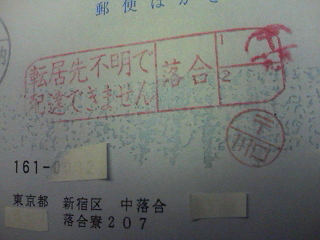 郵便はがき
転居先不明で
配達できません
落合
1
2
161-
東京都 新宿区 中落合
落合寮207